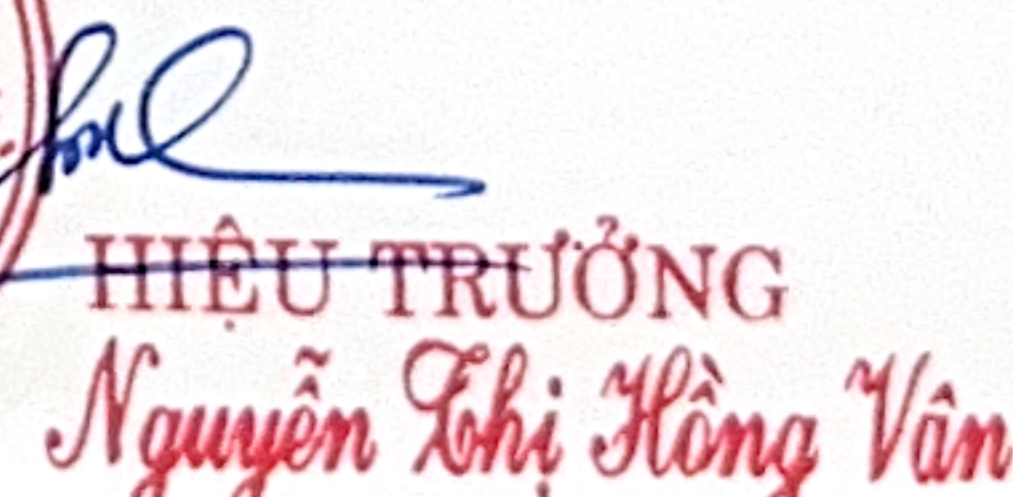 HIỆU TRƯỞNG
Nguyễn Thị Hồng Vân